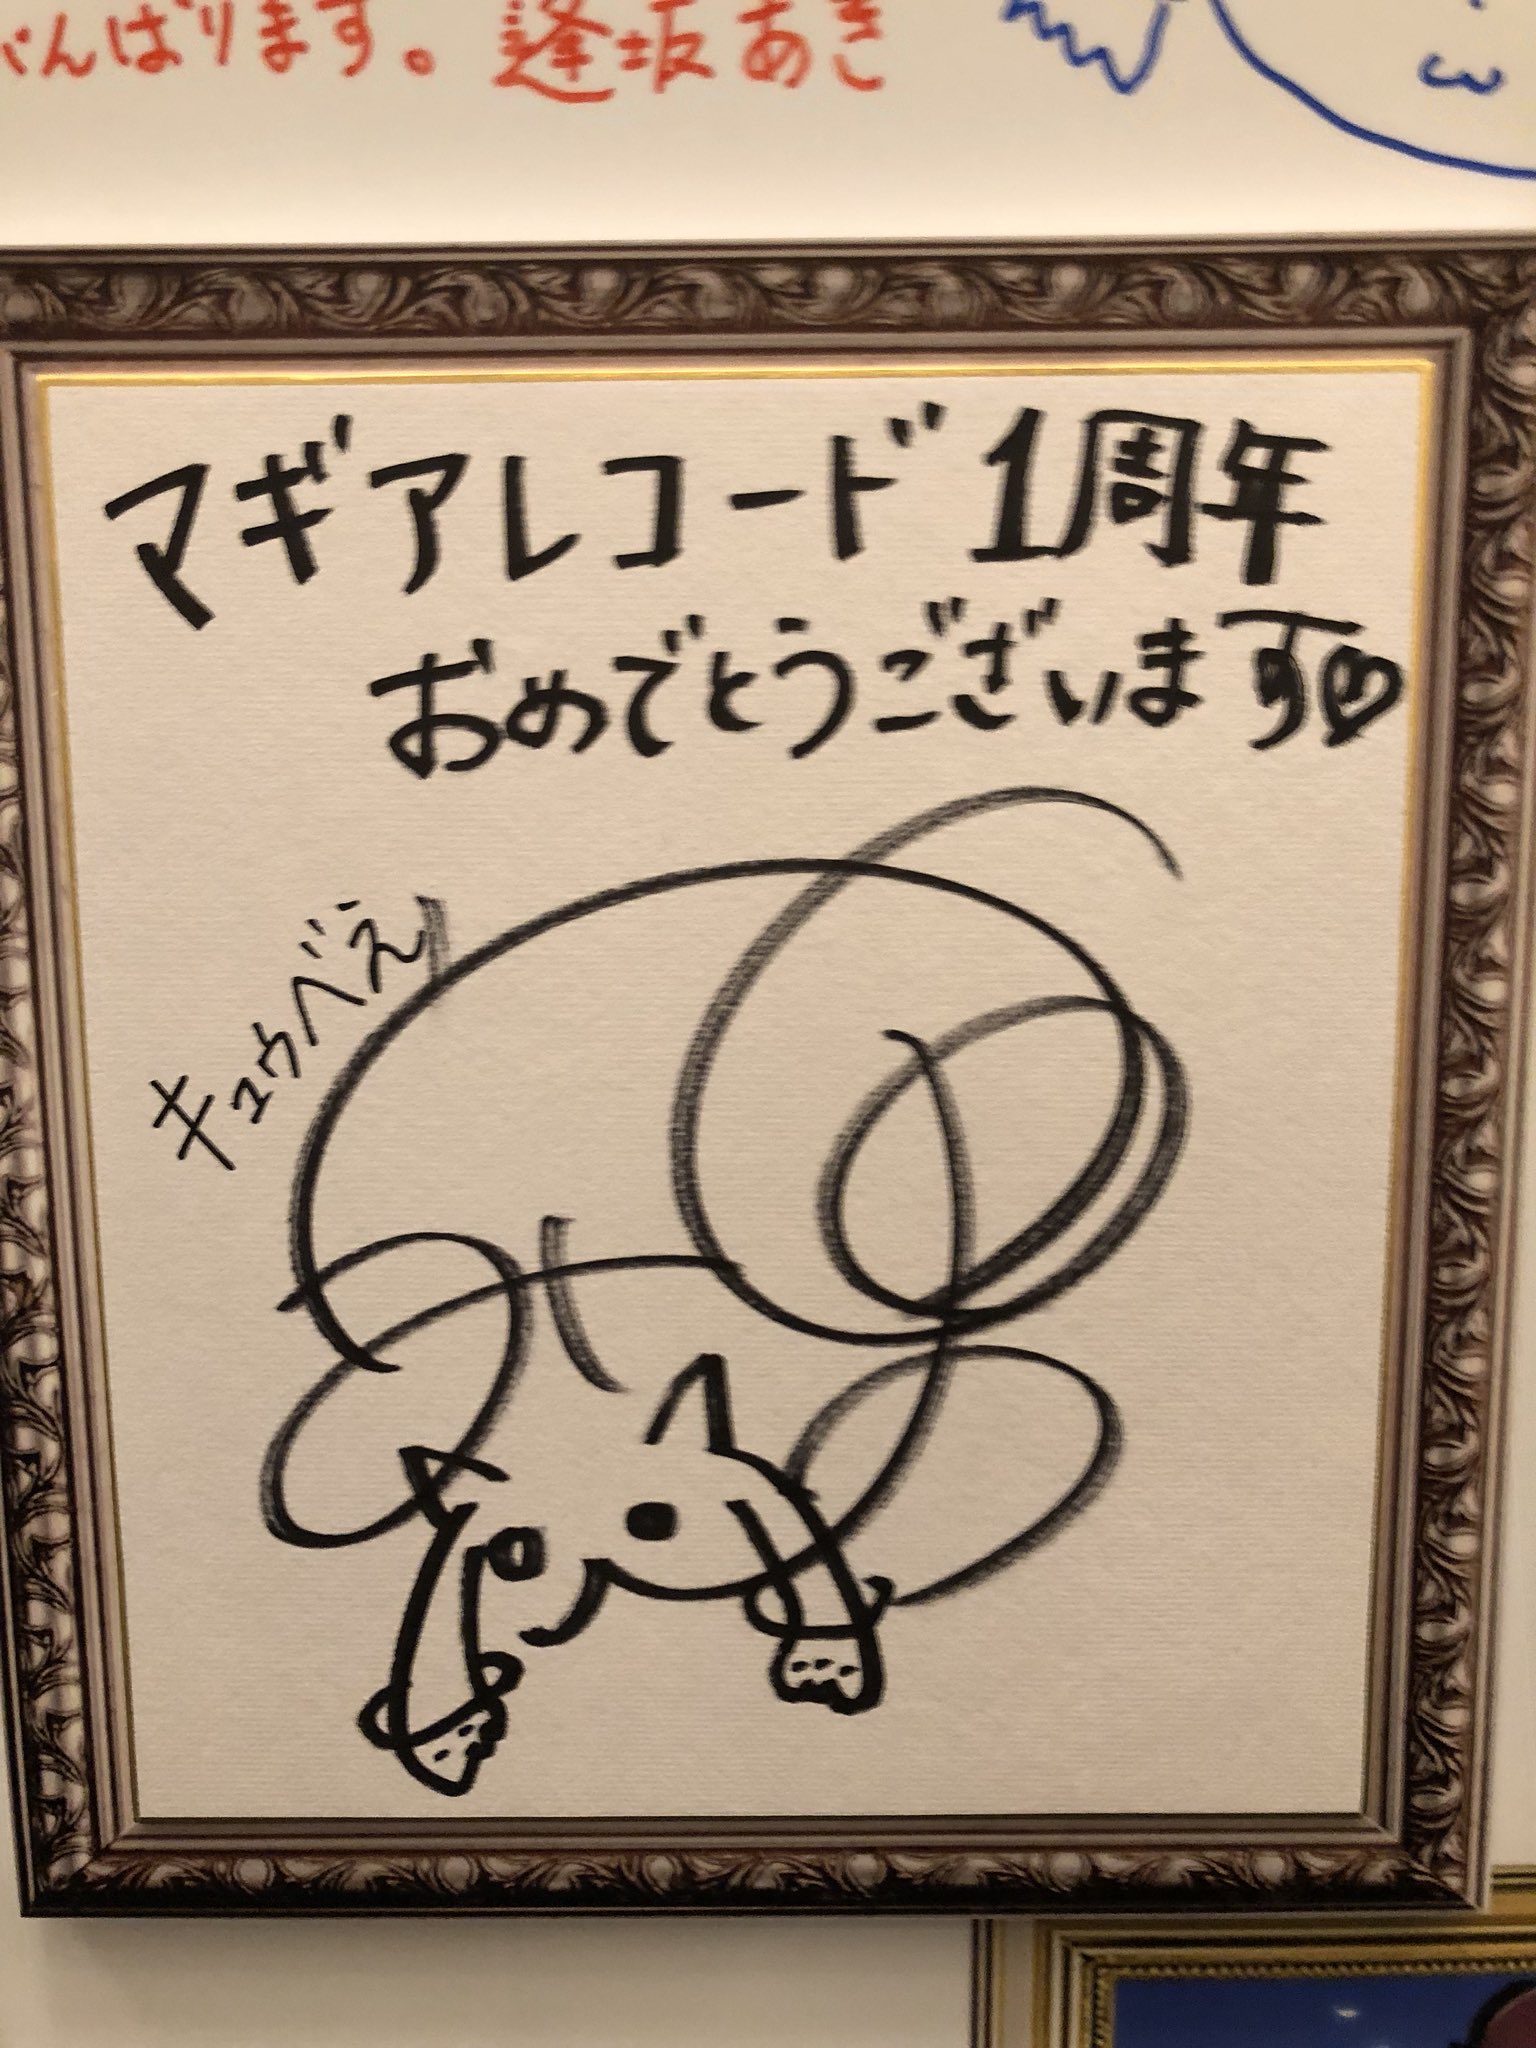 がんばります。逢坂あき
マギアレコード1周年
おめでとうございます
キュゥべえ